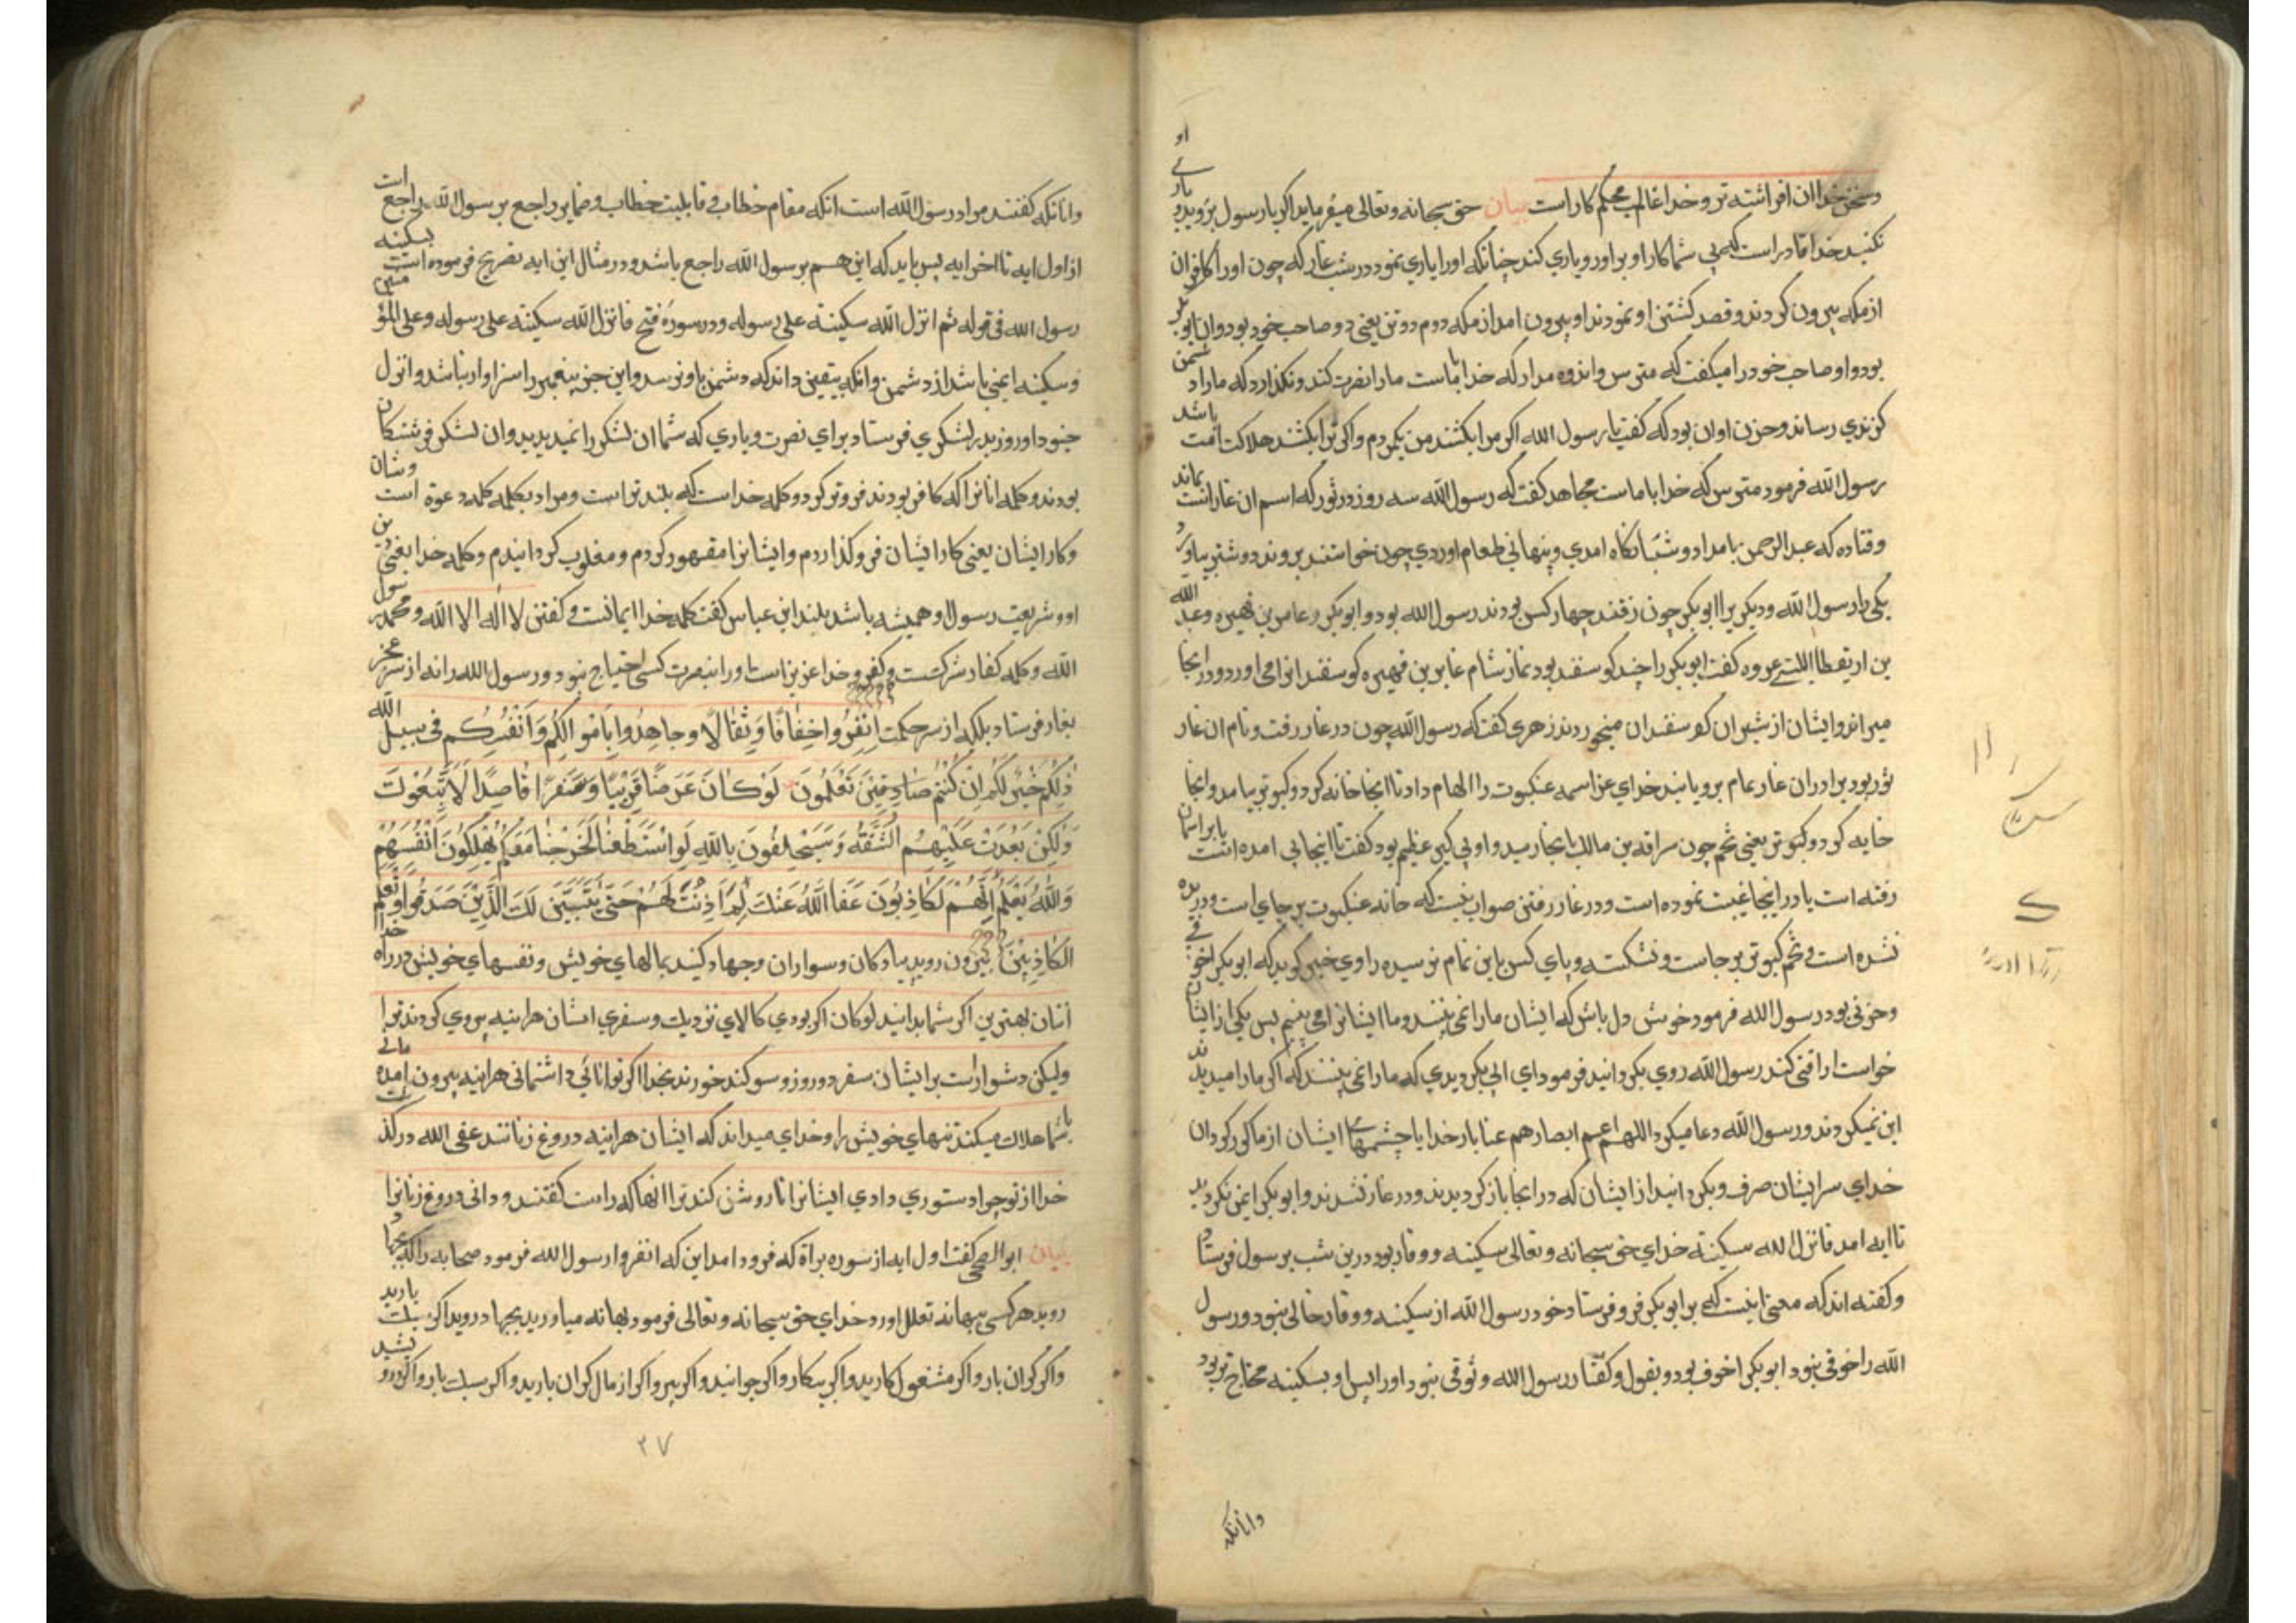 و سخن خدا ان افراشته تر و خدا غالب محکم کار است بیان حق سبحانه و تعالی میفرماید اگر یار رسول بروید و یاری او
نکنید خدا قادر است که بی شما کار او براورد و یاری کند چنانکه او را یاری نمود در شب غار که چون او را کافران
از مکه بیرون کردند و قصد کشتن او نمودند او بیرون امد از مکه دوم دو تن یعنی دو صاحب خود بود و ان ابو بکر
بود و او صاحب خود را میگفت که مترس و اندوه مدار که خدا باماست ما را نصرت کند و نگذارد که ما را دشمن
گزندی رساند و حزن او ان بود که گفت یا رسول الله اگر مرا بکشند من یکمردم و اگر ترا بکشند هلاکت امت باشد
رسول الله فرمود مترس که خدا با ماست مجاهد گفت که رسول الله سه روز در ثور که اسم ان غار است بماند
و قتاده که عبد الرحمن بامداد و شبانکاه امدی و پنهانی طعام اوردی چون خواستند بروند دو شتر بیاورد
یکی را رسول الله و دیگر یرا ابو بکر چون رفتند چهار کس بودند رسول الله بود و ابو بکر و عامر بن فهیره و عبد الله
بن اریقط اللیثی عروه گفت ابو بکر را چند کوسفند بود نماز شام عامر بن فهیره کوسفندانرا می اورد و در انجا
میراند و ایشان از شیر ان کوسفندان میخوردند زهری گفت که رسول الله چون در غار رفت و نام ان غار
ثور بود بر ادران غار عام برویانید خدای عز اسمه عنکبوت را الهام داد تا انجا خانه کرد و کبوتر بیامد و انجا
خایه کرد و کبوتر یعنی تخم چون سراقه بن مالک انجا رسید و او پی گیر عظیم بود گفت تا اینجا پی امده است یا بر اسمان
رفته است یا در اینجا غیبت نموده است و در غار رفتن صواب نیست که خانه عنکبوت بر جای است و دریده
نشده است و تخم کبوتر بر جاست و نشکسته و پای کس باین تمام نرسیده راوی خبر گوید که ابو بکر را خوفی
و حزنی بود رسول الله فرمود خوش دل باش که ایشان ما را نمی بینند و ما ایشانرا می بینیم پس یکی از ایشان
خواست اراقتی کند رسول الله روی بگردانید فرمود ای ابی بکر دیدی که ما را نمی بینند که اگر ما را میدیدند
این نمیکردند و رسول الله دعا میکرد اللهم اعم ابصارهم عنا بار خدایا چشمهای ایشان از ما کور گردان
خدای سر ایشان صرف و بگردانید از ایشان که در انجا باز کردیدند و در غار نشدند و ابو بکر ایمن نگردید
تا ایه امد فانزل الله سکینته خدای حق سبحانه و تعالی سکینه و وقار بود درین شب بر رسول فرستاد
و گفته اند که معنی اینست که بر ابو بکر فرو فرستاد خود رسول الله از سکینه و وقار خالی نبود و رسول
الله را خوفی نبود ابو بکر را خوف بود و بقول و گفتار رسول الله وثوقی نبود او را پس او بسکینه محتاج تر بود
وانانکه
وانانکه گفتند مراد رسول الله است انکه مقام خطاب و قابلیت خطاب و ضمایر راجع بر رسول الله راجع است
از اول ایه تا اخر ایه پس باید که این هم بر رسول الله راجع باشد و در مثال این ایه تصریح فرموده است بسکینه
رسول الله فی قوله ثم انزل الله سکینته علی رسوله و در سوره فتح فانزل الله سکینته علی رسوله و علی المؤمنین
و سکینه ایمنی باشد از دشمن و انکه بیقین داند که دشمن باو نرسد و این جز پیغمبر را سزاوار نباشد و انزل
جنودا و روز بدر لشکری فرستاد برای نصرت و یاری که شما ان لشکر را نمیدیدید و ان لشکر فرشتکان
بودند و کلمه انانرا که کافر بودند فروتر کرد و کلمه خداست که بلند تر است و مراد بکلمه کلمه دعوة است و شان
و کار ایشان یعنی کار ایشان فرو گذاردم و ایشانرا مقهور کردم و مغلوب گردانیدم و کلمه خدا یعنی دین
او و شریعت رسول او همیشه باشد بلند ابن عباس گفت کلمه خدا ایمانست و گفتن لا اله الا الله و محمد رسول
الله و کلمه کفار شرکست و کفر و خدا عزیز است او را بنصرت کسی احتیاج نبود و رسول الله را نه از سر عجز
بغار فرستاد بلکه از سر حکمت اِنْفِرُوا خِفَافًا وَثِقَالًا وَجَاهِدُوا بِاَمْوَالِكُمْ وَاَنْفُسِكُمْ فِی سَبِیلِ اللّٰهِ
ذٰلِكُمْ خَیْرٌ لَكُمْ اِنْ كُنْتُمْ صَادِقِینَ تَعْلَمُونَ لَوْ كَانَ عَرَضًا قَرِیبًا وَسَفَرًا قَاصِدًا لَاتَّبَعُوكَ
وَلٰكِنْ بَعُدَتْ عَلَیْهِمُ الشُّقَّةُ وَسَیَحْلِفُونَ بِاللّٰهِ لَوِ اسْتَطَعْنَا لَخَرَجْنَا مَعَكُمْ یُهْلِكُونَ اَنْفُسَهُمْ
وَاللّٰهُ یَعْلَمُ اِنَّهُمْ لَكَاذِبُونَ عَفَا اللّٰهُ عَنْكَ لِمَ اَذِنْتَ لَهُمْ حَتّٰی یَتَبَیَّنَ لَكَ الَّذِینَ صَدَقُوا وَتَعْلَمَ
الْكَاذِبِینَ بیرون روید پیادکان و سواران و جهاد کنید بمالهای خویش و نفسهای خویش در راه خدا
انتان بهترین اگر شما بدانید لو کان اگر بودی کالای نزدیک و سفری اسان هراینه پیروی کردندی ترا
ولیکن دشوار است بر ایشان سفر دور و زود سوکند خورند بخدا اگر توانائی داشتمانی هراینه بیرون امدمانی
با شما هلاک میکند تنهای خویش را و خدای میداند که ایشان هراینه دروغ زنانند عفی الله در گذشت
خدا از تو چرا دستوری دادی ایشانرا تا روشن کند ترا انها که راست گفتند و دانی دروغ زنانرا
بیان ابو الضحی گفت اول ایه از سوره براة که فرود امد این که انفروا رسول الله فرمود صحابه را که بجهاد
روید هر کسی بهانه تعلل اورد خدای حق سبحانه و تعالی فرمود بهانه میاورید بجهاد روید اگر سبک بارید
و اگر گران بار و اگر مشغول کارید و اگر بیکار و اگر جوانید و اگر پیر و اگر از مال گران بارید و اگر سبک بار و اگر
۲۷